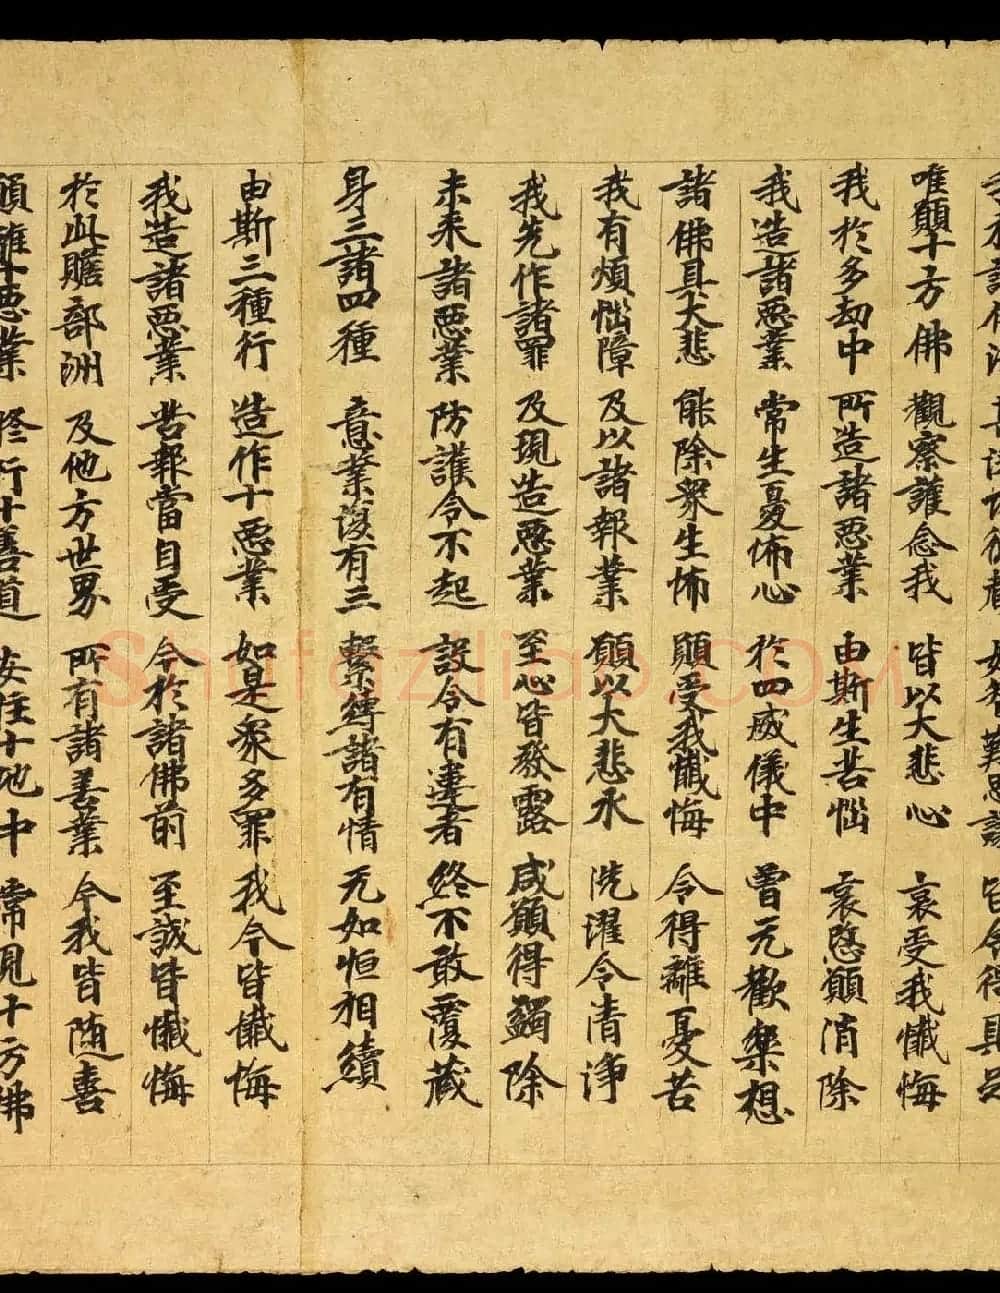 我於諸佛海 甚深功德藏 妙智難思議 皆令得具足
唯願十方佛 觀察護念我 皆以大悲心 哀受我懺悔
我於多劫中 所造諸惡業 由斯生苦惱 哀愍願消除
我造諸惡業 常生憂怖心 於四威儀中 曾无歡樂想
諸佛具大悲 能除衆生怖 願受我懺悔 令得離憂苦
我有煩惱障 及以諸報業 願以大悲水 洗濯令清淨
我先作諸罪 及現造惡業 至心皆發露 咸願得蠲除
未來諸惡業 防護令不起 設令有違者 終不敢覆藏
身三諸四種 意業復有三 繫縛諸有情 无始恒相續
由斯三種行 造作十惡業 如是衆多罪 我今皆懺悔
我造諸惡業 苦報當自受 今於諸佛前 至誠皆懺悔
於此贍部洲 及他方世界 所有諸善業 今我皆随喜
願離十惡業 修行十善道 安住十地中 常見十方佛
Shufaziliao.COM